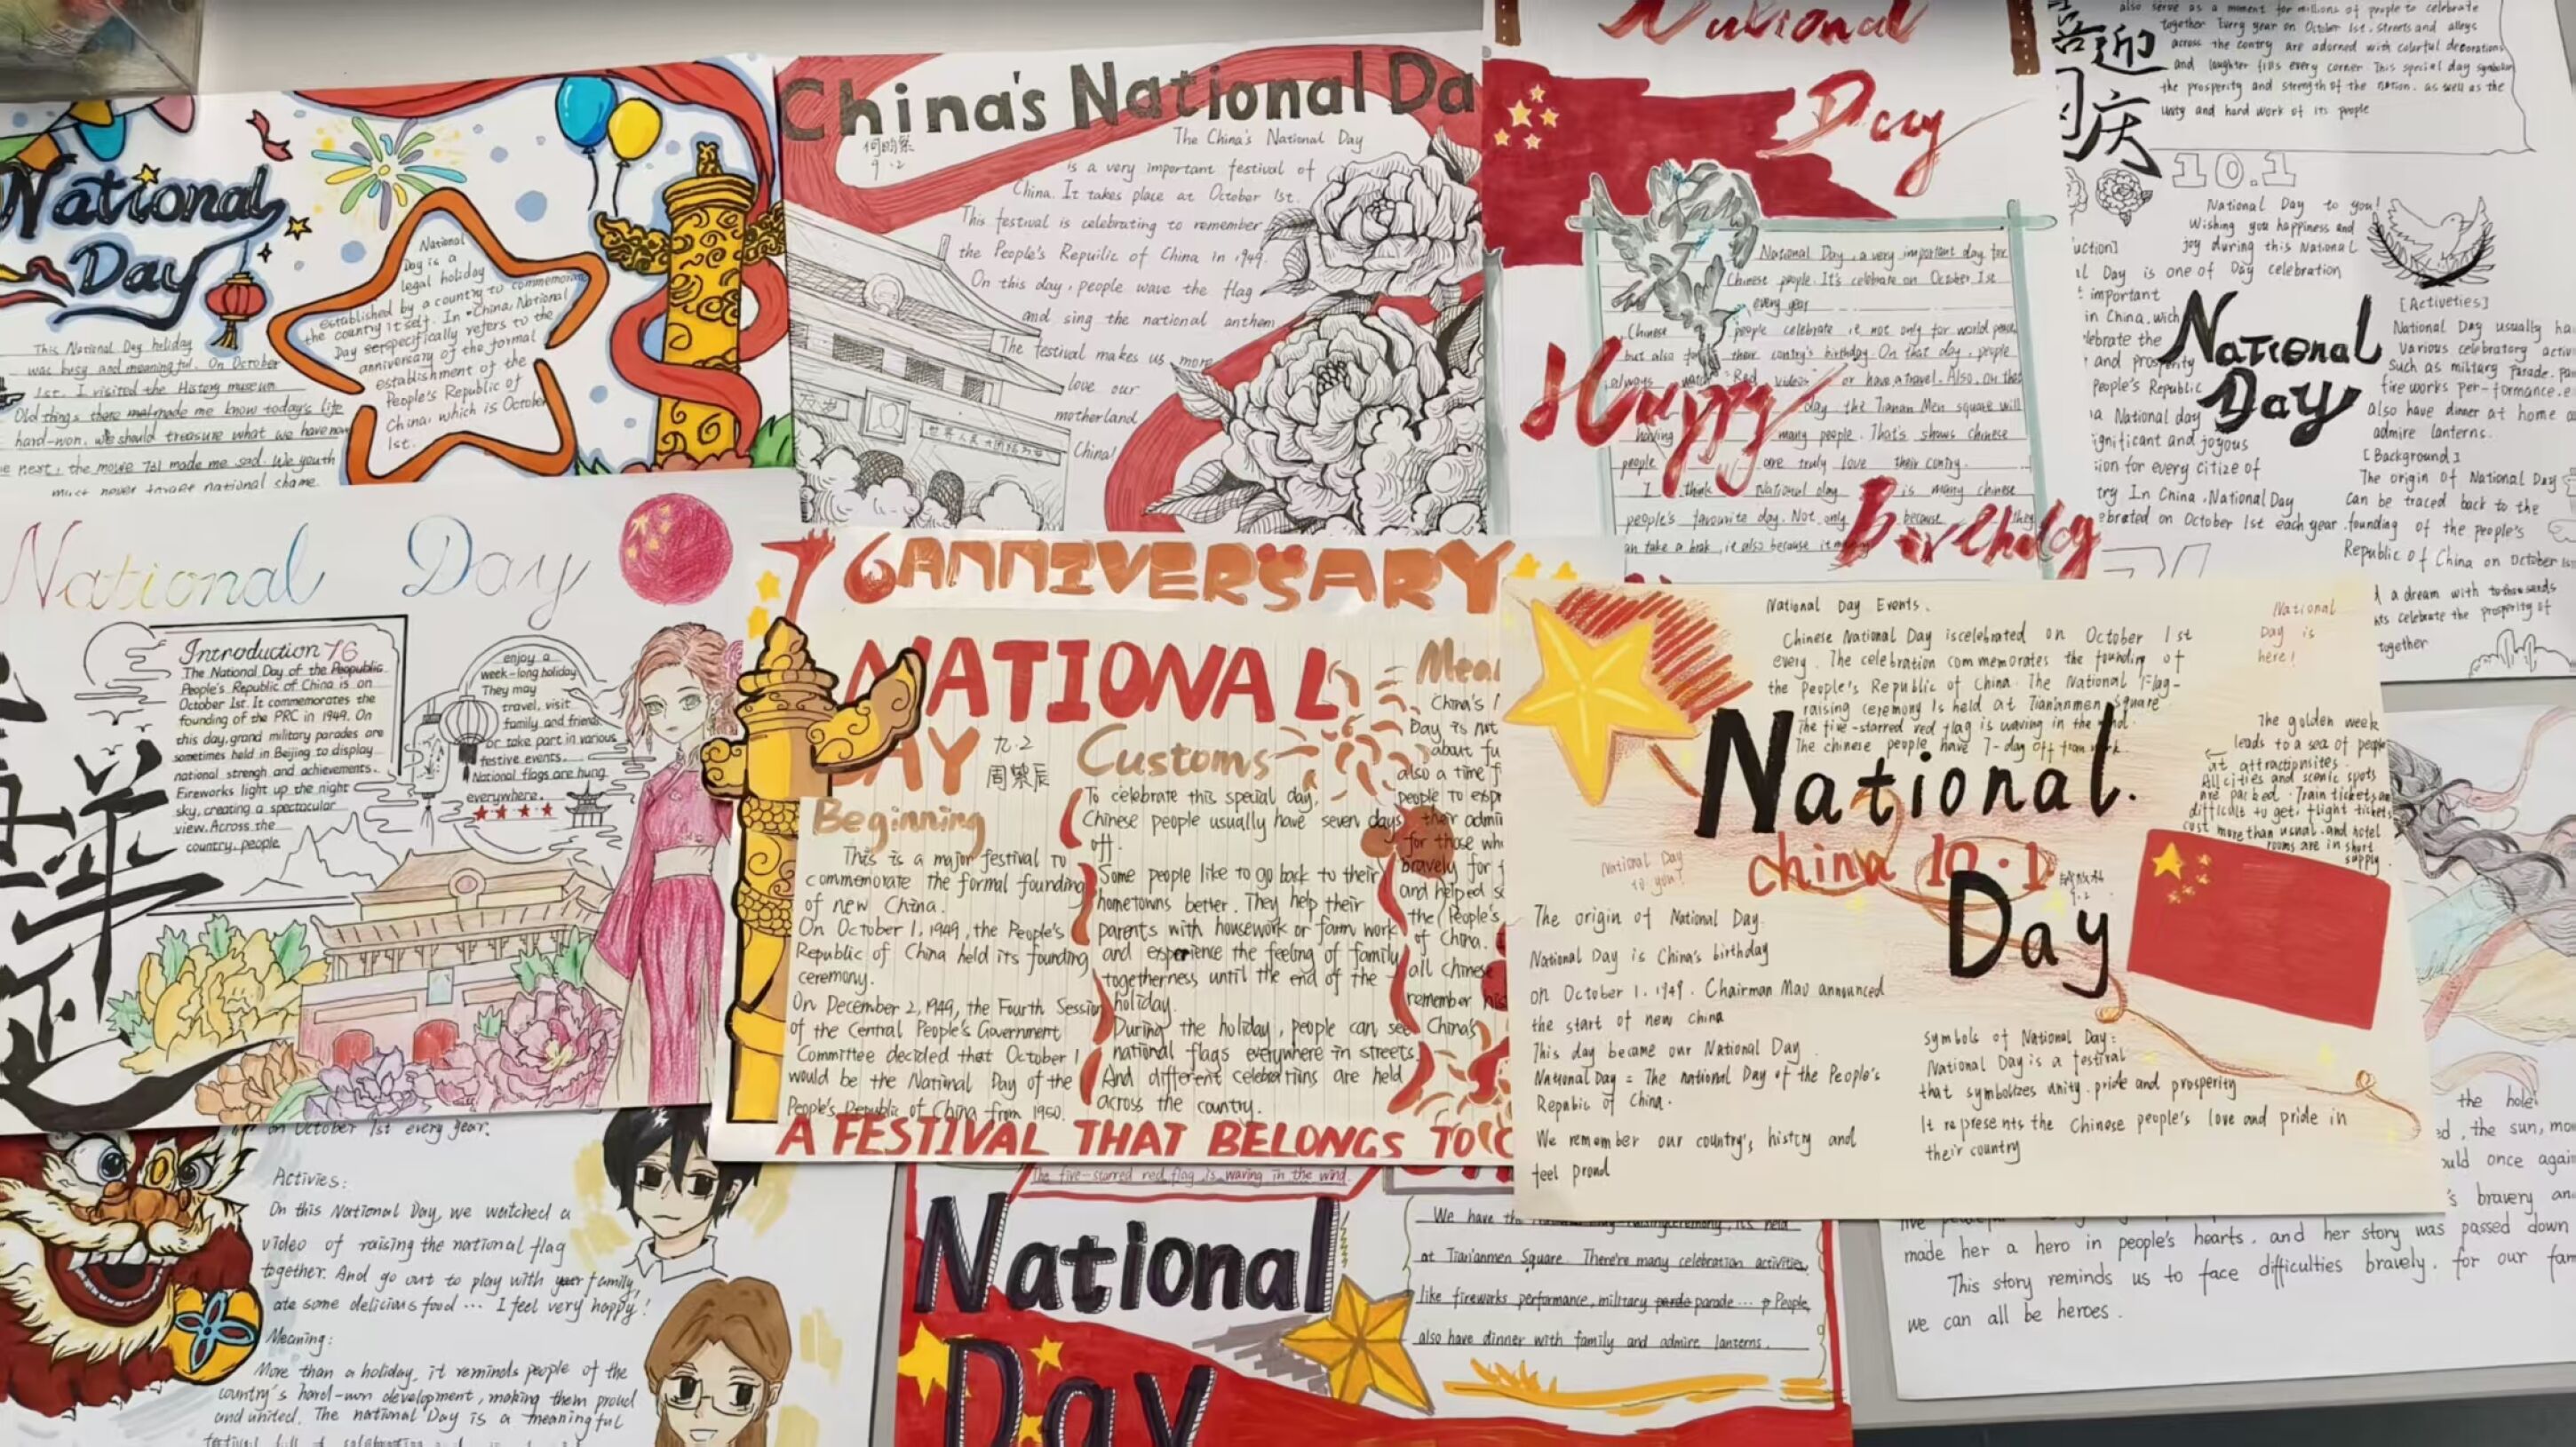 National
Day
National
Day is a
legal holiday
established by a country to commemorate
the country itself. In China, National
Day specifically refers to the
anniversary of the formal
establishment of the
People's Republic of
China, which is October
1st.
This National Day holiday
was busy and meaningful. On October
1st. I visited the History museum
Old things there made me know today's life
hard-won. We should treasure what we have now
next, the movie 731 made me sad. We youth
must never forget national shame
China's National Da
The China's National Day
9.2
is a very important festival of
China. It takes place at October 1st.
This festival is celebrating to remember
the People's Repuilic of China in 1949.
On this day, people wave the flag
and sing the national anthem
The festival makes us more
love our
motherland
China!
National
Day
National Day, a very important day for
Chinese people. It's celebrate on October 1st
every year
Chinese people celebrate it not only for world peace,
but also for their contry's birthday. On that day, people
always watch "Red videos" or have a travel. Also, on that
day the Tianan Men square will
having many people. That's shows chinese
people are truly love their contry.
I think National day is many chinese
people's favourite day. Not only because they
an take a brak, it also because it
Happy
Birthday
also serve as a moment for millions of people to celebrate
together Every year on October 1st, streets and alleys
across the contry are adorned with colorful decorations
and laughter fills every corner. This special day
the prosperity and strength of the nation, as well as the
unity and hard work of its people
喜迎
国庆
10.1
National Day to you!
Wishing you happiness and
joy during this National
Day celebration
uction]
l Day is one of
important
in China, wich
lebrate the
and prosperity
People's Republic
a National day
ignificant and joyous
ion for every citize of
try In China, National Day
ebrated on October 1st each year.
National
Day
[Activeties]
National Day usually ha
various celebratory activ
Such as military parade, pa
fire works per-formance, e
also have dinner at home a
admire lanterns.
[Background]
The origin of National Day
can be traced back to the
founding of the people's
Republic of China on October
a dream with
celebrate the prosperity of
together
National Day
Introduction 76
The National Day of the
People's Republic of China is on
October 1st. It commemorates the
founding of the PRC in 1949. On
this day, grand military parades are
sometimes held in Beijing to display
national strengh and achievements.
Fireworks light up the night
sky, creating a spectacular
view. Across the
country, people
enjoy a
week-long holiday
They may
travel, visit
family and friends
or take part in various
festive events.
National flags are hung
everywhere.
76 ANNIVERSARY
NATIONAL
DAY
九.2
Beginning
This is a major festival to
commemorate the formal founding
of new China.
On October 1, 1949, the People's
Republic of China held its founding
ceremony.
On December 2, 1949, the Fourth Session
of the Central People's Government
Committee decided that October 1
would be the National Day of the
People's Republic of China from 1950.
Customs
To celebrate this special day,
Chinese people usually have seven days
off.
Some people like to go back to their
hometowns better. They help their
parents with housework or farm work
and experience the feeling of family
togetherness until the end of the
holiday.
During the holiday, people can see
national flags everywhere in streets.
And different celebrations are held
across the country.
Mea
China's
Day is not
about fu
also a time f
people to expr
their admir
for those wh
bravely for
and helped
the People's
of China.
all Chinese
remember his
China's
A FESTIVAL THAT BELONGS TO C
National Day Events.
Chinese National Day iscelebrated on October 1st
every. The celebration commemorates the founding of
the People's Republic of China. The National Flag-
raising ceremony Is held at Tian'anmen square
The five-starred red flag is waving in the wind.
The chinese people have 7-day off from work.
National
Day is
here!
The golden week
leads to a sea of people
at attractionsites.
All cities and scenic spots
are packed. Train tickets are
difficult to get, flight tickets
cost more than usual, and hotel
rooms are in short
supply.
National.
china 10.1
Day
National Day
to you!
The origin of National Day.
National Day is China's birthday
on October 1. 1949. Chairman Mao announced
the start of new China
This day became our National Day
National Day = The national Day of the People's
Repubic of China.
We remember our country's history and
feel proud
symbols of National Day:
National Day is a festival
that symbolizes unity, pride and prosperity
It represents the Chinese people's love and pride in
their country
on October 1st every year.
Activies:
On this National Day, we watched a
video of raising the national flag
together. And go out to play with family,
ate some delicious food ... I feel very happy!
Meaning:
More than a holiday, it reminds people of the
country's hard-won development, making them proud
and united. The national Day is a meaningful
The five-starred red flag is waving in the wind.
National
Day
We have the
at Tian'anmen Square. There're many celebration activities,
like fireworks performance, military parade ... People
also have dinner with family and admire lanterns.
the hole
the sun, moo
uld once again
's bravery an
made her a hero in people's hearts, and her story was passed down
This story reminds us to face difficulties bravely, for our fam
we can all be heroes.